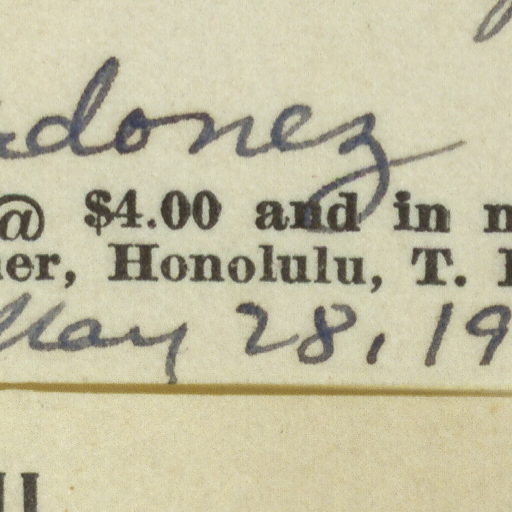 donez
@ $4.00 and in
er, Honolulu, T.
May 28, 19